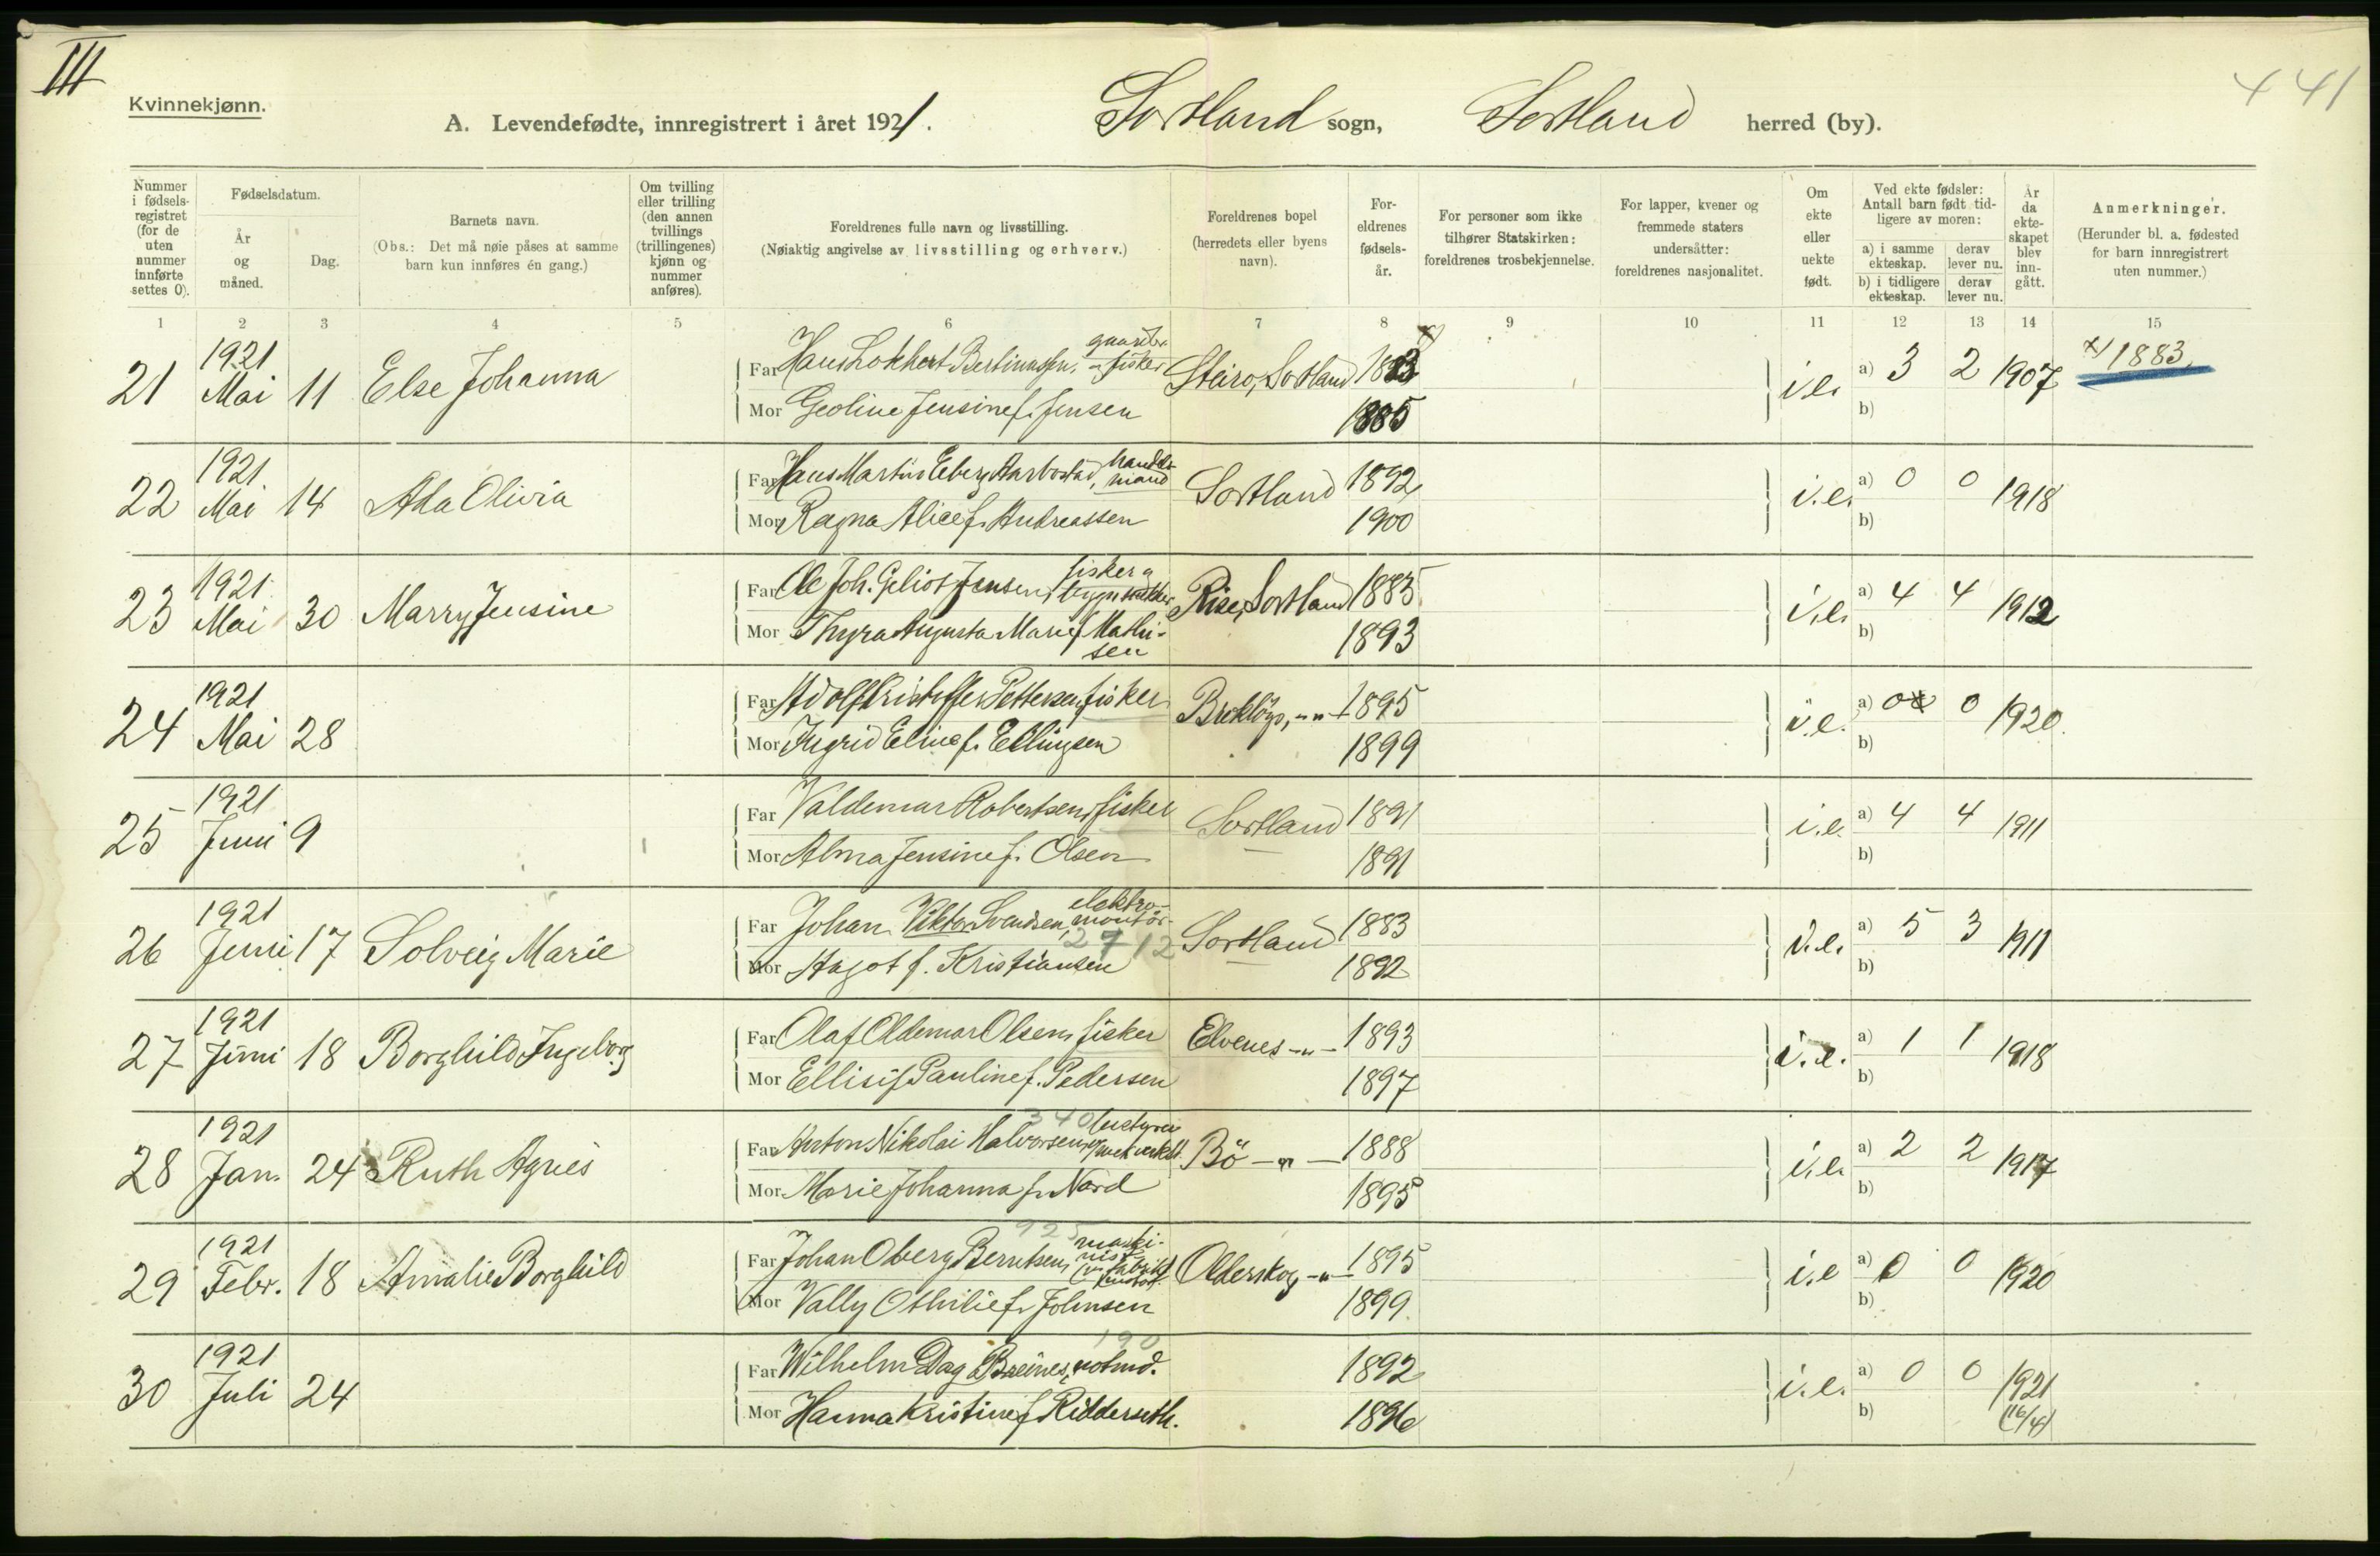 III
Kvinnekjønn.
441
A. Levendefødte, innregistrert i året 1921. Sortland sogn, Sortland herred (by).
Nummer i fødselsregistret (for de uten nummer innførte settes 0).
Fødselsdatum.
År og måned.
Dag.
Barnets navn.
(Obs.: Det må nøie påses at samme barn kun innføres én gang.)
Om tvilling eller trilling (den annen tvillings (trillingenes) kjønn og nummer anføres).
Foreldrenes fulle navn og livsstilling.
(Nøiaktig angivelse av livsstilling og erhverv.)
Foreldrenes bopel (herredets eller byens navn).
Foreldrenes fødselsår.
For personer som ikke tilhører Statskirken: foreldrenes trosbekjennelse.
For lapper, kvener og fremmede staters undersåtter: foreldrenes nasjonalitet.
Om ekte eller uekte født.
Ved ekte fødsler: Antall barn født tidligere av moren:
a) i samme ekteskap. derav lever nu.
b) i tidligere ekteskap. derav lever nu.
År da ekteskapet blev inngått.
Anmerkninger.
(Herunder bl. a. fødested for barn innregistrert uten nummer.)
1 2 3 4 5 6 7 8 9 10 11 12 13 14 15
21 1921 Mai 11 Else Johanna
Far Hans Lokkert Bertinussen, gaardbr. fisker Steiro, Sortland 1883 x) i.e. a) 3 2 1907 x) 1883
Mor Geoline Jensine f. Jensen 1885 b)
22 1921 Mai 14 Ada Olivia
Far Hans Martin Eberg Aarbostad, handelsmand Sortland 1892 i.e. a) 0 0 1918
Mor Ragna Alice f. Andreassen 1900 b)
23 1921 Mai 30 Marry Jensine
Far Ole Joh. Geliot Jensen, fisker Rise, Sortland 1885 i.e. a) 4 4 1912
Mor Thyra Augusta Marie f. Mathisen 1893 b)
24 1921 Mai 28
Far Adolf Kristoffer Pettersen, fisker -"- 1895 i.e. a) 0 0 1920.
Mor Ingrid Eline f. Ellingsen 1899 b)
25 1921 Juni 9
Far Valdemar Robertsen, fisker Sortland 1891 i.e. a) 4 4 1911
Mor Alma Jensine f. Olsen 1891 b)
26 1921 Juni 17 Solveig Marie
Far Johan Viktor Svendsen, elektromontör. Sortland 1883 i.e. a) 5 3 1911
2712
Mor Hagot f. Kristiansen 1892 b)
27 1921 Juni 18 Borghild Ingeborg
Far Olaf Oldemar Olsen, fisker Elvenes -"- 1893 i.e. a) 1 1 1918
Mor Ellisif Pauline f. Pedersen 1897 b)
340
28 1921 Jan. 24 Ruth Agnes
Far Anton Nikolai Halvorsen, bestyrer mek verkst. Bö -"- 1888 i.e. a) 2 2 1917
Mor Marie Johanna f. Nord 1895 b)
925
29 1921 Febr. 18 Amalie Borghild
Far Johan Oberg Berntsen, maskinist Olderskog -"- 1895 i.e a) 0 0 1920
Mor Vally Othilie f. Johnsen 1899. b)
190
30 1921 Juli 24
Far Wilhelm Dag Breines, rotmd. 1892 i.e. a) 0 0 1921 (16/4)
Mor Hanna Kristine f. Ridderseth. 1896 b)